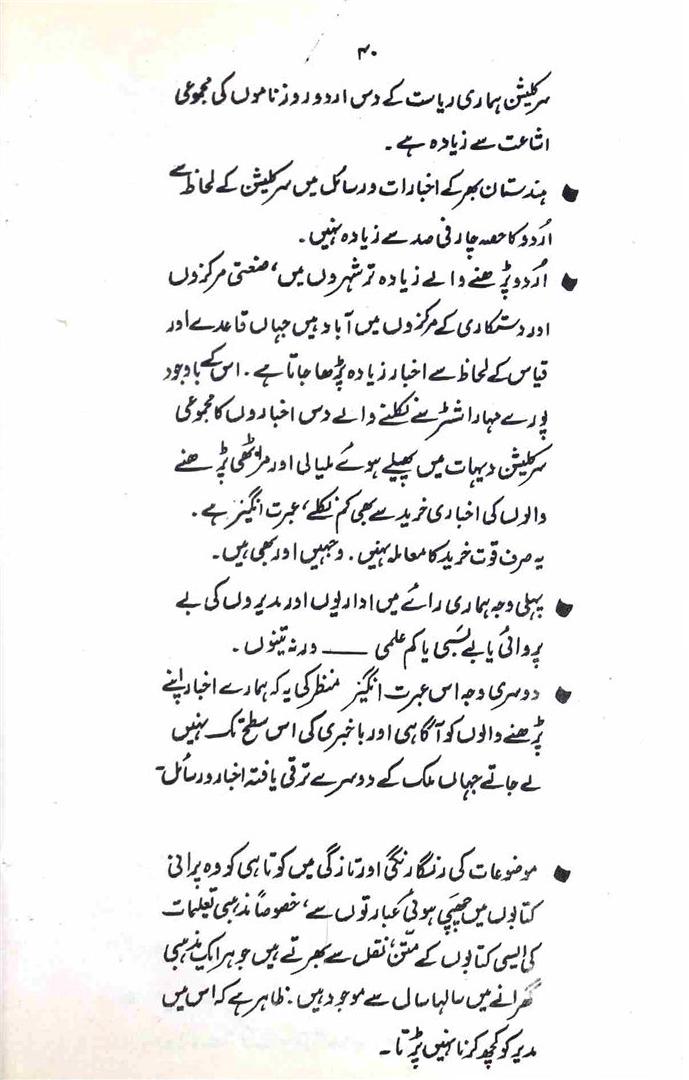 ۴۰
سرکلیشن ہماری ریاست کے دس اردو روزناموں کی مجموعی
اشاعت سے زیادہ ہے۔
ہندستان بھر کے اخبارات و رسائل میں سرکلیشن کے لحاظ سے
اُردو کا حصہ چار فی صد سے زیادہ نہیں۔
اُردو پڑھنے والے زیادہ تر شہروں میں، صنعتی مرکزوں
اور دستکاری کے مرکزوں میں آباد ہیں جہاں قاعدے اور
قیاس کے لحاظ سے اخبار زیادہ پڑھا جاتا ہے۔ اس کے باوجود
پورے مہاراشٹر سے نکلنے والے دس اخباروں کا مجموعی
سرکلیشن دیہات میں پھیلے ہوئے ملیالی اور مراٹھی پڑھنے
والوں کی اخباری خرید سے بھی کم نکلے، عبرت انگیز ہے۔
یہ صرف قوت خرید کا معاملہ نہیں۔ وجہیں اور بھی ہیں۔
پہلی وجہ ہماری رائے میں اداریوں اور مدیروں کی بے
پروائی یا بے بسی یا کم علمی ــــ ورنہ تینوں۔
دوسری وجہ اس عبرت انگیز منظر کی یہ کہ ہمارے اخبار اپنے
پڑھنے والوں کو آگاہی اور باخبری کی اس سطح تک نہیں
لے جاتے جہاں ملک کے دوسرے ترقی یافتہ اخبار و رسائل۔
موضوعات کی رنگا رنگی اور تازگی میں کوتاہی کو وہ پرانی
کتابوں میں چھپی ہوئی عبارتوں سے، خصوصاً مذہبی تعلیمات
کی ایسی کتابوں کے متن نقل سے بھرتے ہیں جو ہر ایک مذہبی
گھرانے میں سالہا سال سے موجود ہیں: ظاہر ہے کہ اس میں
مدیر کو کچھ کرنا نہیں پڑتا۔